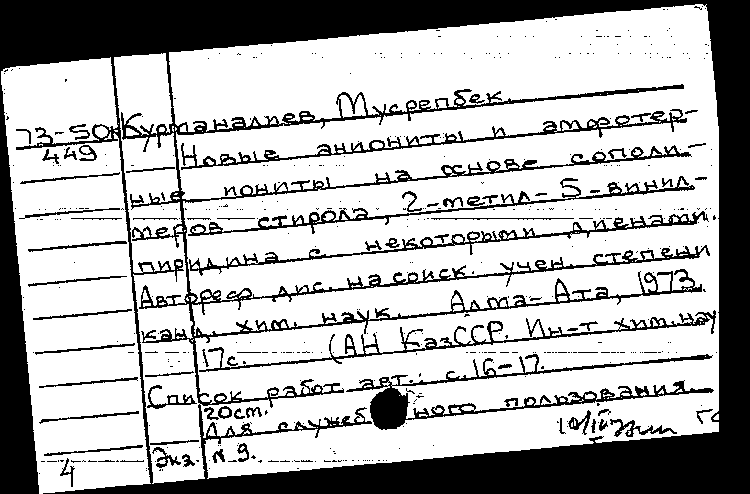 73-50к Курманалиев, Мусрепбек.
449 Новые аниониты и амфотер-
ные иониты на основе сополи-
меров стирола, 2-метил-5-винил-
пиридина с некоторыми диенами.
Автореф. дис. на соиск. учен. степени
канд. хим. наук. Алма-Ата, 1973.
17с. (АН КазССР. Ин-т хим. нау
Список работ авт.: с. 16-17.
20ст.
Для служебного пользования.
Экз. N 9.
4